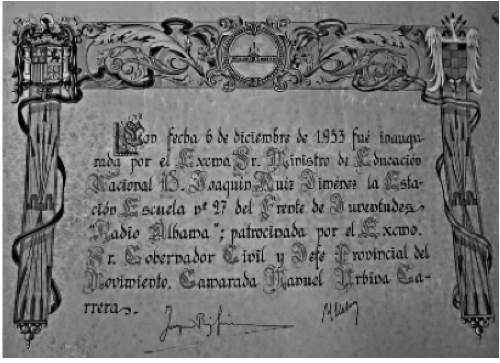 Con fecha 6 de diciembre de 1.953 fué inaugu-
rada por el Excmo. Sr. Ministro de Educación
Nacional D. Joaquín Ruiz Jiménez la Esta-
ción Escuela nº 27 del Frente de Juventudes
"Radio Alhama"; patrocinada por el Excmo.
Sr. Gobernador Civil y Jefe Provincial del
Movimiento, Camarada Manuel Urbina Ca-
rrera.